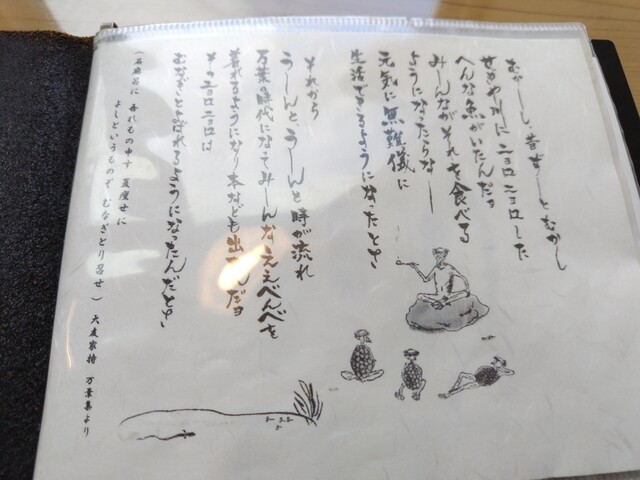 むかーし 昔 ずーとむかし
せめや川に ニョロニョロした
へんな魚がいたんだヨ
みーんながそれを食べる
ようになったらなー
元気に 無難儀に
生活できるようになったとさ
それから
うーんと、うーんと 時が流れ
万葉の時代になってみーんなええべんべを
着れるようになり 本なども出たんだヨ
そのニョロニョロは
むなぎとよばれるようになったんだとさ
(石麻呂に 吾れもの申す 夏痩せに
よしというものぞ むなぎとり召せ) 大友家持 万葉集より